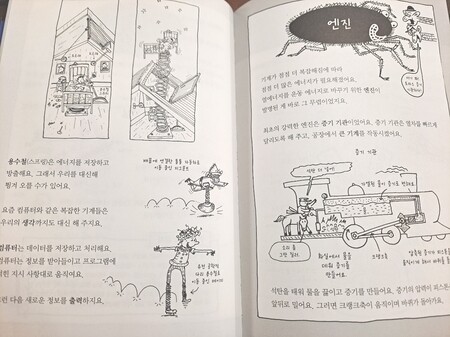 용수철(스프링)은 에너지를 저장하고
방출해요. 그래서 우리를 대신해
튕겨 오를 수가 있어요.
요즘 컴퓨터와 같은 복잡한 기계들은
우리의 생각까지도 대신 해 주지요.
컴퓨터는 데이터를 저장하고 처리해요.
컴퓨터는 정보를 받아들이고 프로그램에
적힌 지시 사항대로 움직여요.
그런 다음 새로운 정보를 출력하지요.
엔진
기계가 점점 더 복잡해짐에 따라
점점 더 많은 에너지가 필요해졌어요.
열에너지를 운동 에너지로 바꾸기 위한 엔진이
발명된 게 바로 그 무렵이었지요.
최초의 강력한 엔진은 증기 기관이었어요. 증기 기관은 열차를 빠르게
달리도록 해 주고, 공장에서 큰 기계를 작동시켰어요.
증기 기관
석탄 더 가득!
가열된 물이 증기로 변해요.
화실에서 물을
데워 증기를
만들어요.
크랭크축
석탄을 태워 물을 끓이고 증기를 만들어요. 증기의 압력이 피스톤을
앞뒤로 밀어요. 그러면 크랭크축이 움직이며 바퀴가 돌아가요.